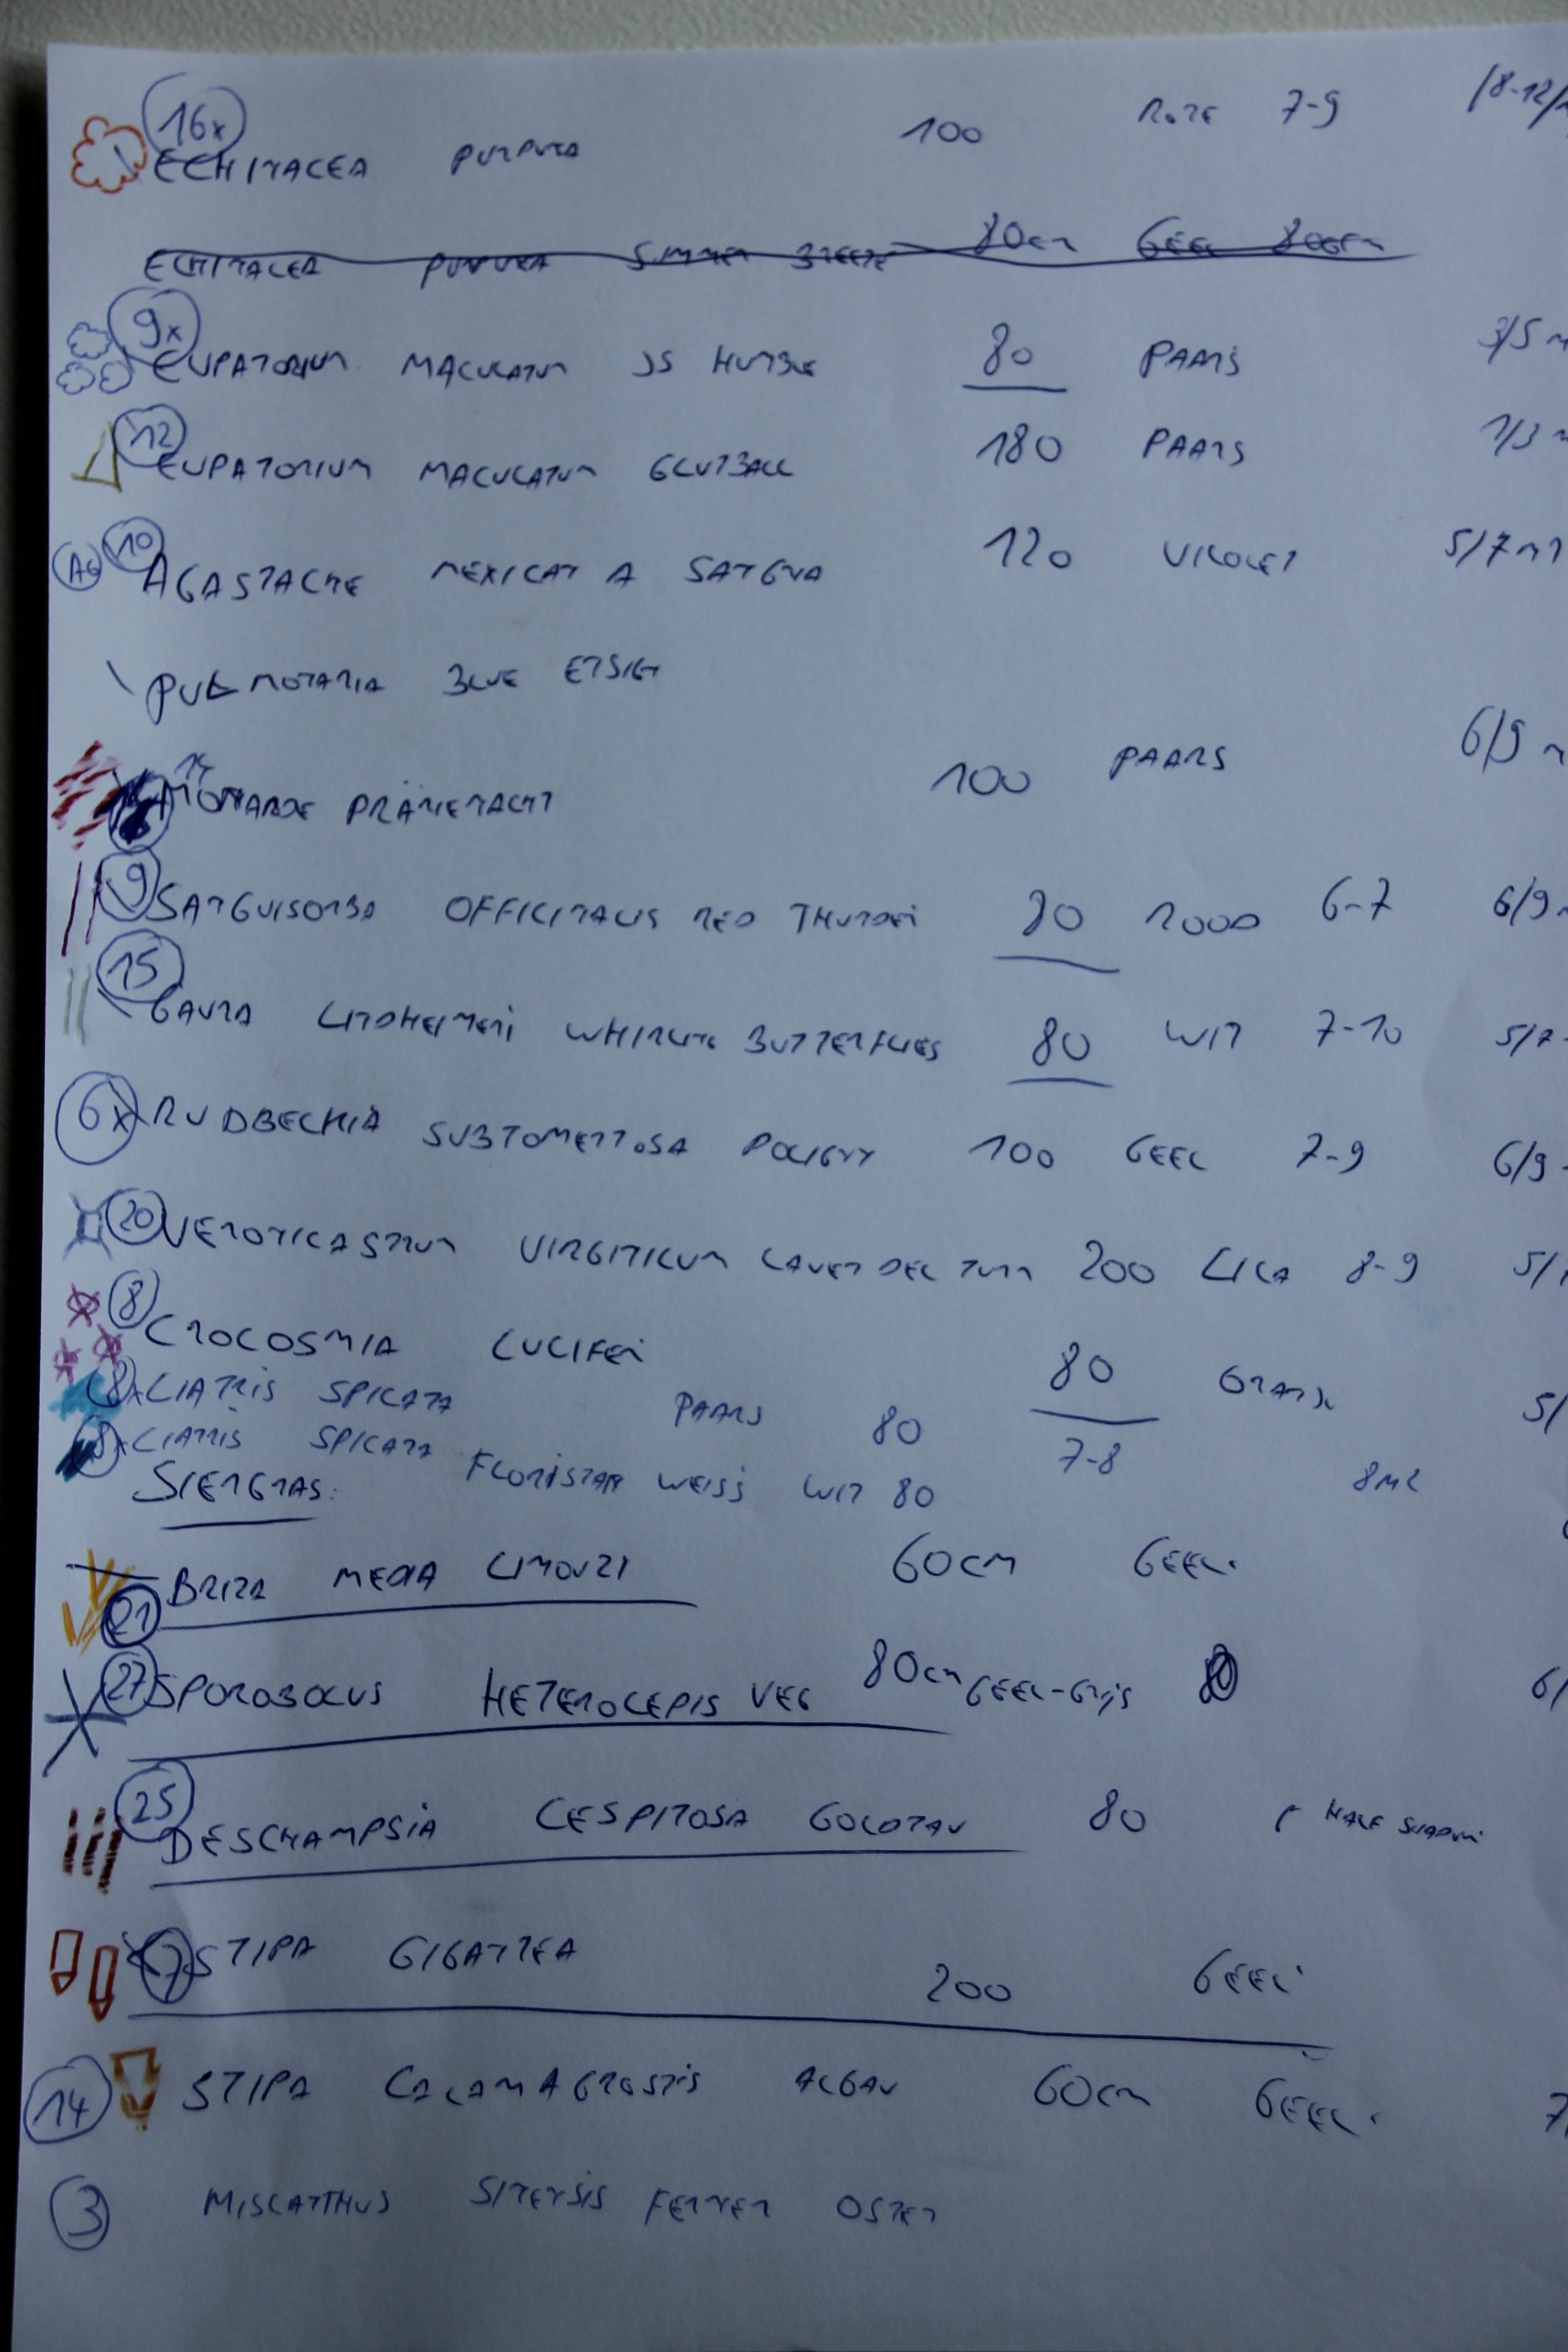 16x
ECHINACEA PURPUREA 100 ROZE 7-9
ECHINACEA PURPUREA SUMMER BREEZE 80cm GEEL
9x
EUPATORIUM MACULATUM JS HUMBLE 80 PAARS 3/5
12
EUPATORIUM MACULATUM GLUTBALL 180 PAARS 1/3
AG 10 AGASTACHE MEXICANA SANGRIA 120 VIOLET 5/7 m2
PULMONARIA BLUE ENSIGN
14
MONARDE PRÄRIENACHT 100 PAARS 6/9
9 SANGUISORBA OFFICINALIS RED THUNDER 80 ROOD 6-7 6/9
15
GAURA LINDHEIMERI WHIRLING BUTTERFLIES 80 WIT 7-10 5/7
6x RUDBECKIA SUBTOMENTOSA POLIGNY 100 GEEL 7-9 6/9
20 VERONICASTRUM VIRGINICUM LAVENDELTURM 200 LILA 8-9 5/
8
CROCOSMIA LUCIFER 80 ORANJE 5/
8x LIATRIS SPICATA PAARS 80 7-8
8x LIATRIS SPICATA FLORISTAN WEISS WIT 80 8m2
SIERGRAS:
BRIZA MEDIA LIMOUZI 60cm GEEL
21
27 SPOROBOLUS HETEROLEPIS VEG 80cm GEEL-GRIJS
25
DESCHAMPSIA CESPITOSA GOLDTAU 80 HALF SCHADUW
7 STIPA GIGANTEA 200 GEEL
14 STIPA CALAMAGROSTIS ALGAU 60cm GEEL 7/
3 MISCANTHUS SINENSIS FERNER OSTEN